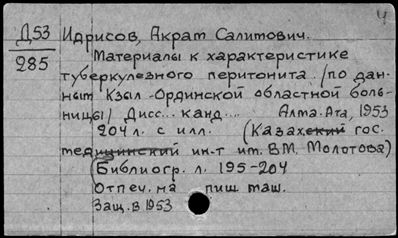 4
Д53
285
Идрисов, Акрат Салитович.
Материалы к характеристике
туберкулезного перитонита /по дан-
ным Кзыл-Ординской областной боль-
ницы/ Дисс... канд... Алма-Ата, 1953
204 л. с илл. (Казахский гос.
медицинский ин-т им. В.М. Молотова)
(Библиогр. л. 195-204
Отпеч. на пиш. маш.
Защ. в 1953